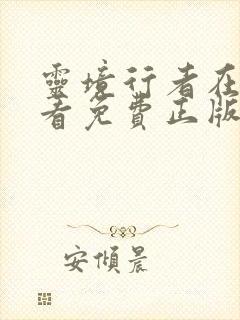 靈境行者在
者免費正版
安傾晨